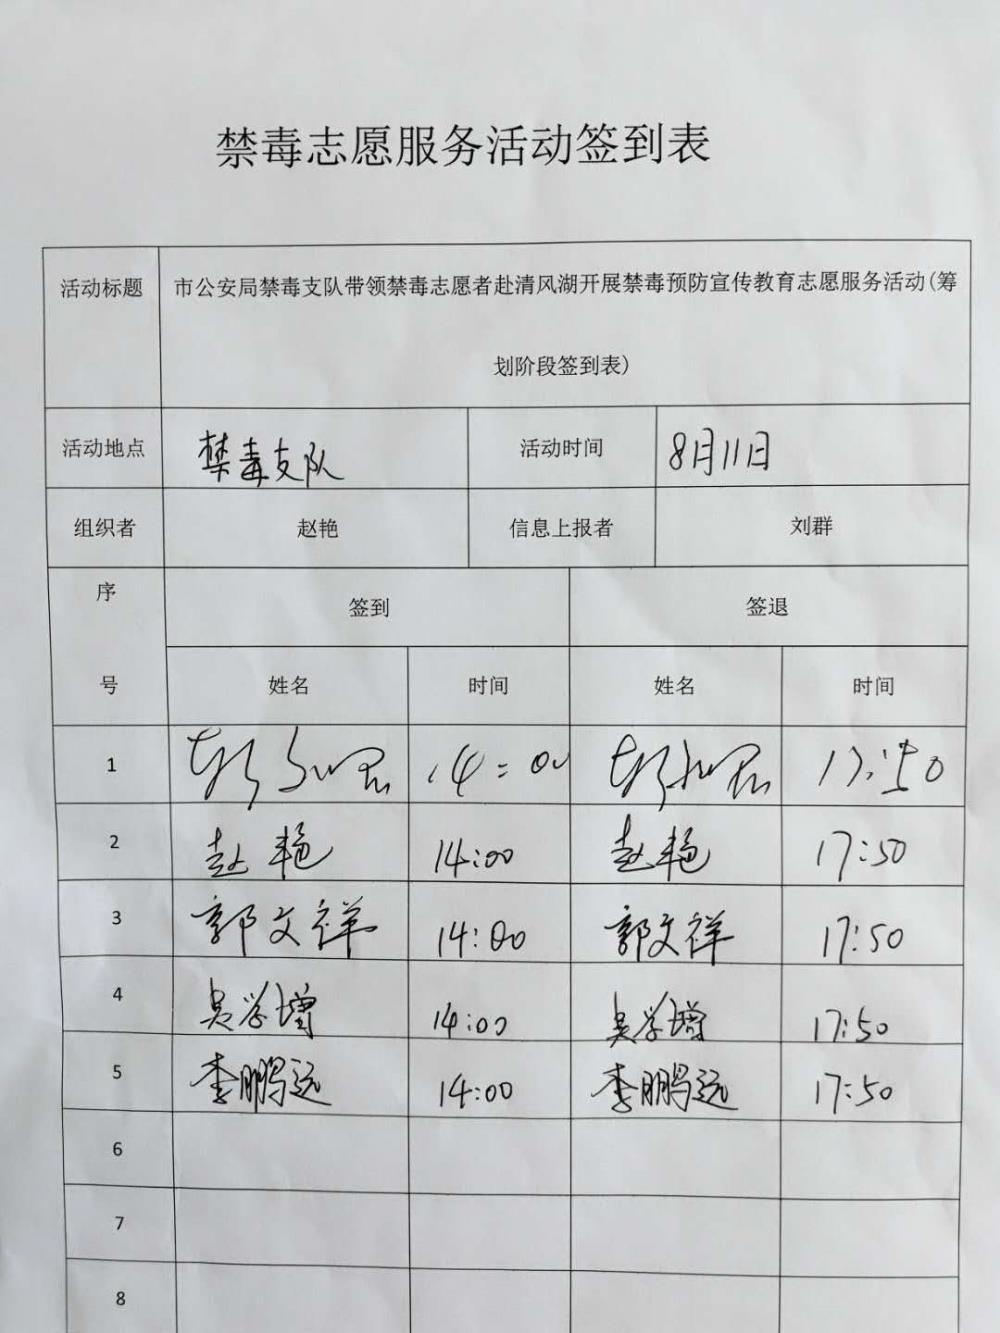 禁毒志愿服务活动签到表
活动标题 市公安局禁毒支队带领禁毒志愿者赴清风湖开展禁毒预防宣传教育志愿服务活动(筹
划阶段签到表)
活动地点 禁毒支队 活动时间 8月11日
组织者 赵艳 信息上报者 刘群
序 签到 签退
号 姓名 时间 姓名 时间
1 14:00 17:50
2 赵艳 14:00 赵艳 17:50
3 郭文祥 14:00 郭文祥 17:50
4 吴学增 14:00 吴学增 17:50
5 李鹏远 14:00 李鹏远 17:50
6
7
8